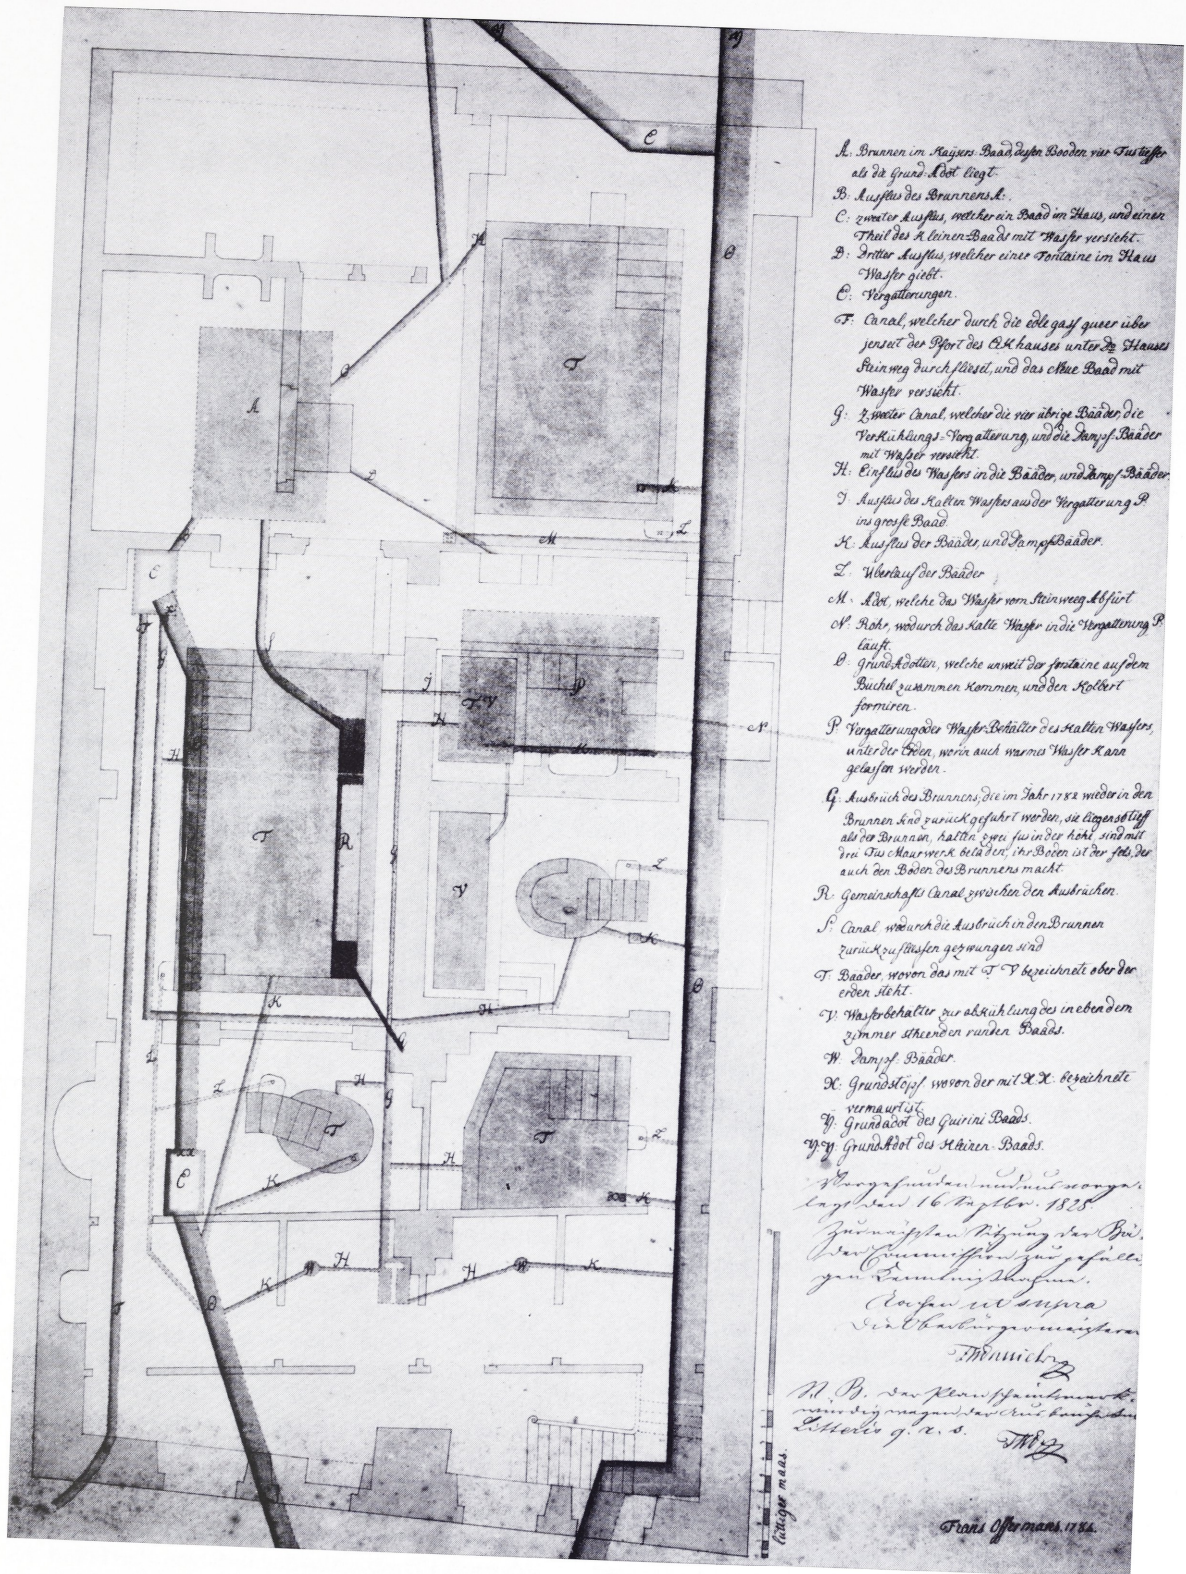 A: Brunnen im Kaÿsers-Baad, dessen Booden vier Fus tieffer
als die Grund-Adot liegt.
B: Ausflus des Brunnens A:
C: zweiter Ausflus, welcher ein Baad im Haus, und einen
Theil des Kleinen-Baads mit Wasser versieht.
D: dritter Ausflus, welcher einer Fontaine im Haus
Wasser giebt.
E: Vergatterungen.
F: Canal, welcher durch die edle gass queer über
jenseit der Pfort des Eckhauses unter Hauses
Steinweg durchfliesst, und das Neue Baad mit
Wasser versieht.
G: Zweiter Canal, welcher die vier übrige Bääder, die
Verkühlungs-Vergatterung, und die Dampf-Bääder
mit Wasser versieht.
H: Einflus des Wassers in die Bääder, und Dampf-Bääder.
J: Ausflus des Kalten Wassers aus der Vergatterung P.
ins grosse Baad.
K: Ausflus der Bääder, und Dampf-Bääder.
L: Überlauf der Bääder
M: Adot, welche das Wasser vom Steinweeg Abfürt
N: Rohr, wodurch das Kalte Wasser in die Vergatterung P.
läuft.
O: Grund-Adotten, welche unweit der fontaine auf dem
Büchel zusammen kommen, und den Kolbert
formiren.
P: Vergatterung oder Wasser-Behälter des Kalten Wassers,
unter der Erden, worin auch warmes Wasser kann
gelassen werden.
Q: Ausbrüch des Brunnens, die im Jahr 1782 wieder in den
Brunnen sind zurück gefuhrt worden, sie liegen so tieff
als der Brunnen, halten zwei fus in der höhe, sind mit
drei Fus Maurwerk beladen, ihr Boden ist der fels, der
auch den Boden des Brunnens macht.
R: Gemeinschafts Canal zwischen den Ausbrüchen.
S: Canal wodurch die Ausbrüch in den Brunnen
zurück zu fliessen gezwungen sind
T: Baader, wovon das mit T V bezeichnete ober der
erden steht.
V: Wasserbehälter zur abkühlung des in eben dem
zimmer stheenden runden Baads.
W: Dampf-Bääder.
X: Grundstöpf wovon der mit X.X. bezeichnete
vermaurt ist.
Y: Grundadot des Quirini Baads.
Y.Y: Grund Adot des Kleinen-Baads.
Vorgefunden und uns vorge-
legt den 16 Septbr. 1828.
Zur nächsten Sitzung der Bä-
der Commission zur gefälli-
gen Kenntnißnahme.
Aachen ut supra
Die Oberbürgermeisterei
N. B. Der Plan scheint merk-
würdig wegen der Ausbrüche
Litteris q. r. s.
lüttiger maas.
Frans Offermans. 1784.
Y
Y
E
H
O
T
C
A
D
K
L
M
B
E
F
F
G
S
J
T V
P
H
N
K
H
O
T
R
G
V
L
K
O
K
H
L
L
H
G
T
T
L
H
XX
E
K
K
W
H
K
H
W
K
O
F